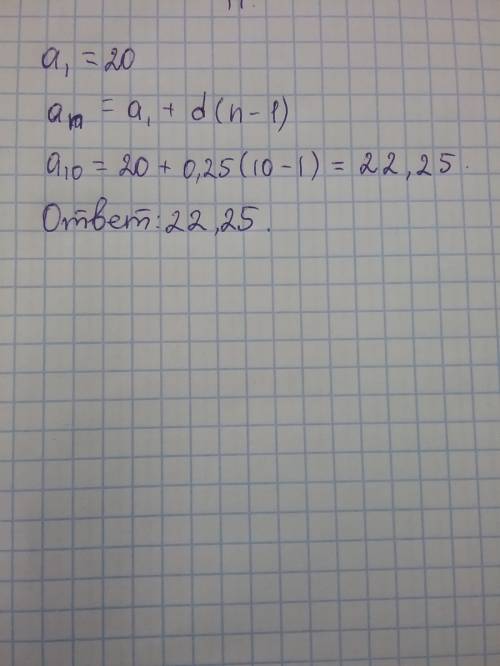 a₁ = 20
aₙ = a₁ + d(n-1)
a₁₀ = 20 + 0,25(10-1) = 22,25.
Ответ: 22,25.